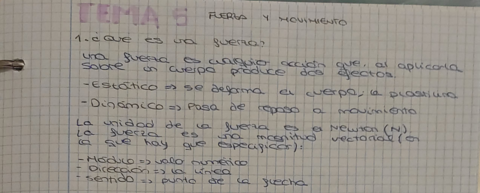 TEMA 5 FUERZA Y MOVIMIENTO
1. ¿Que es una fuerza?
una fuerza es cualquier acción que, al aplicarla
sobre un cuerpo produce dos efectos:
- Estático => se deforma el cuerpo, la
- Dinámico => Pasa de reposo a movimiento
La unidad de la fuerza es el Newton (N)
La fuerza es una magnitud vectorial (en
la que hay que especificar):
- Módulo => valor numérico
- Dirección => la línea
- Sentido => punto de la flecha